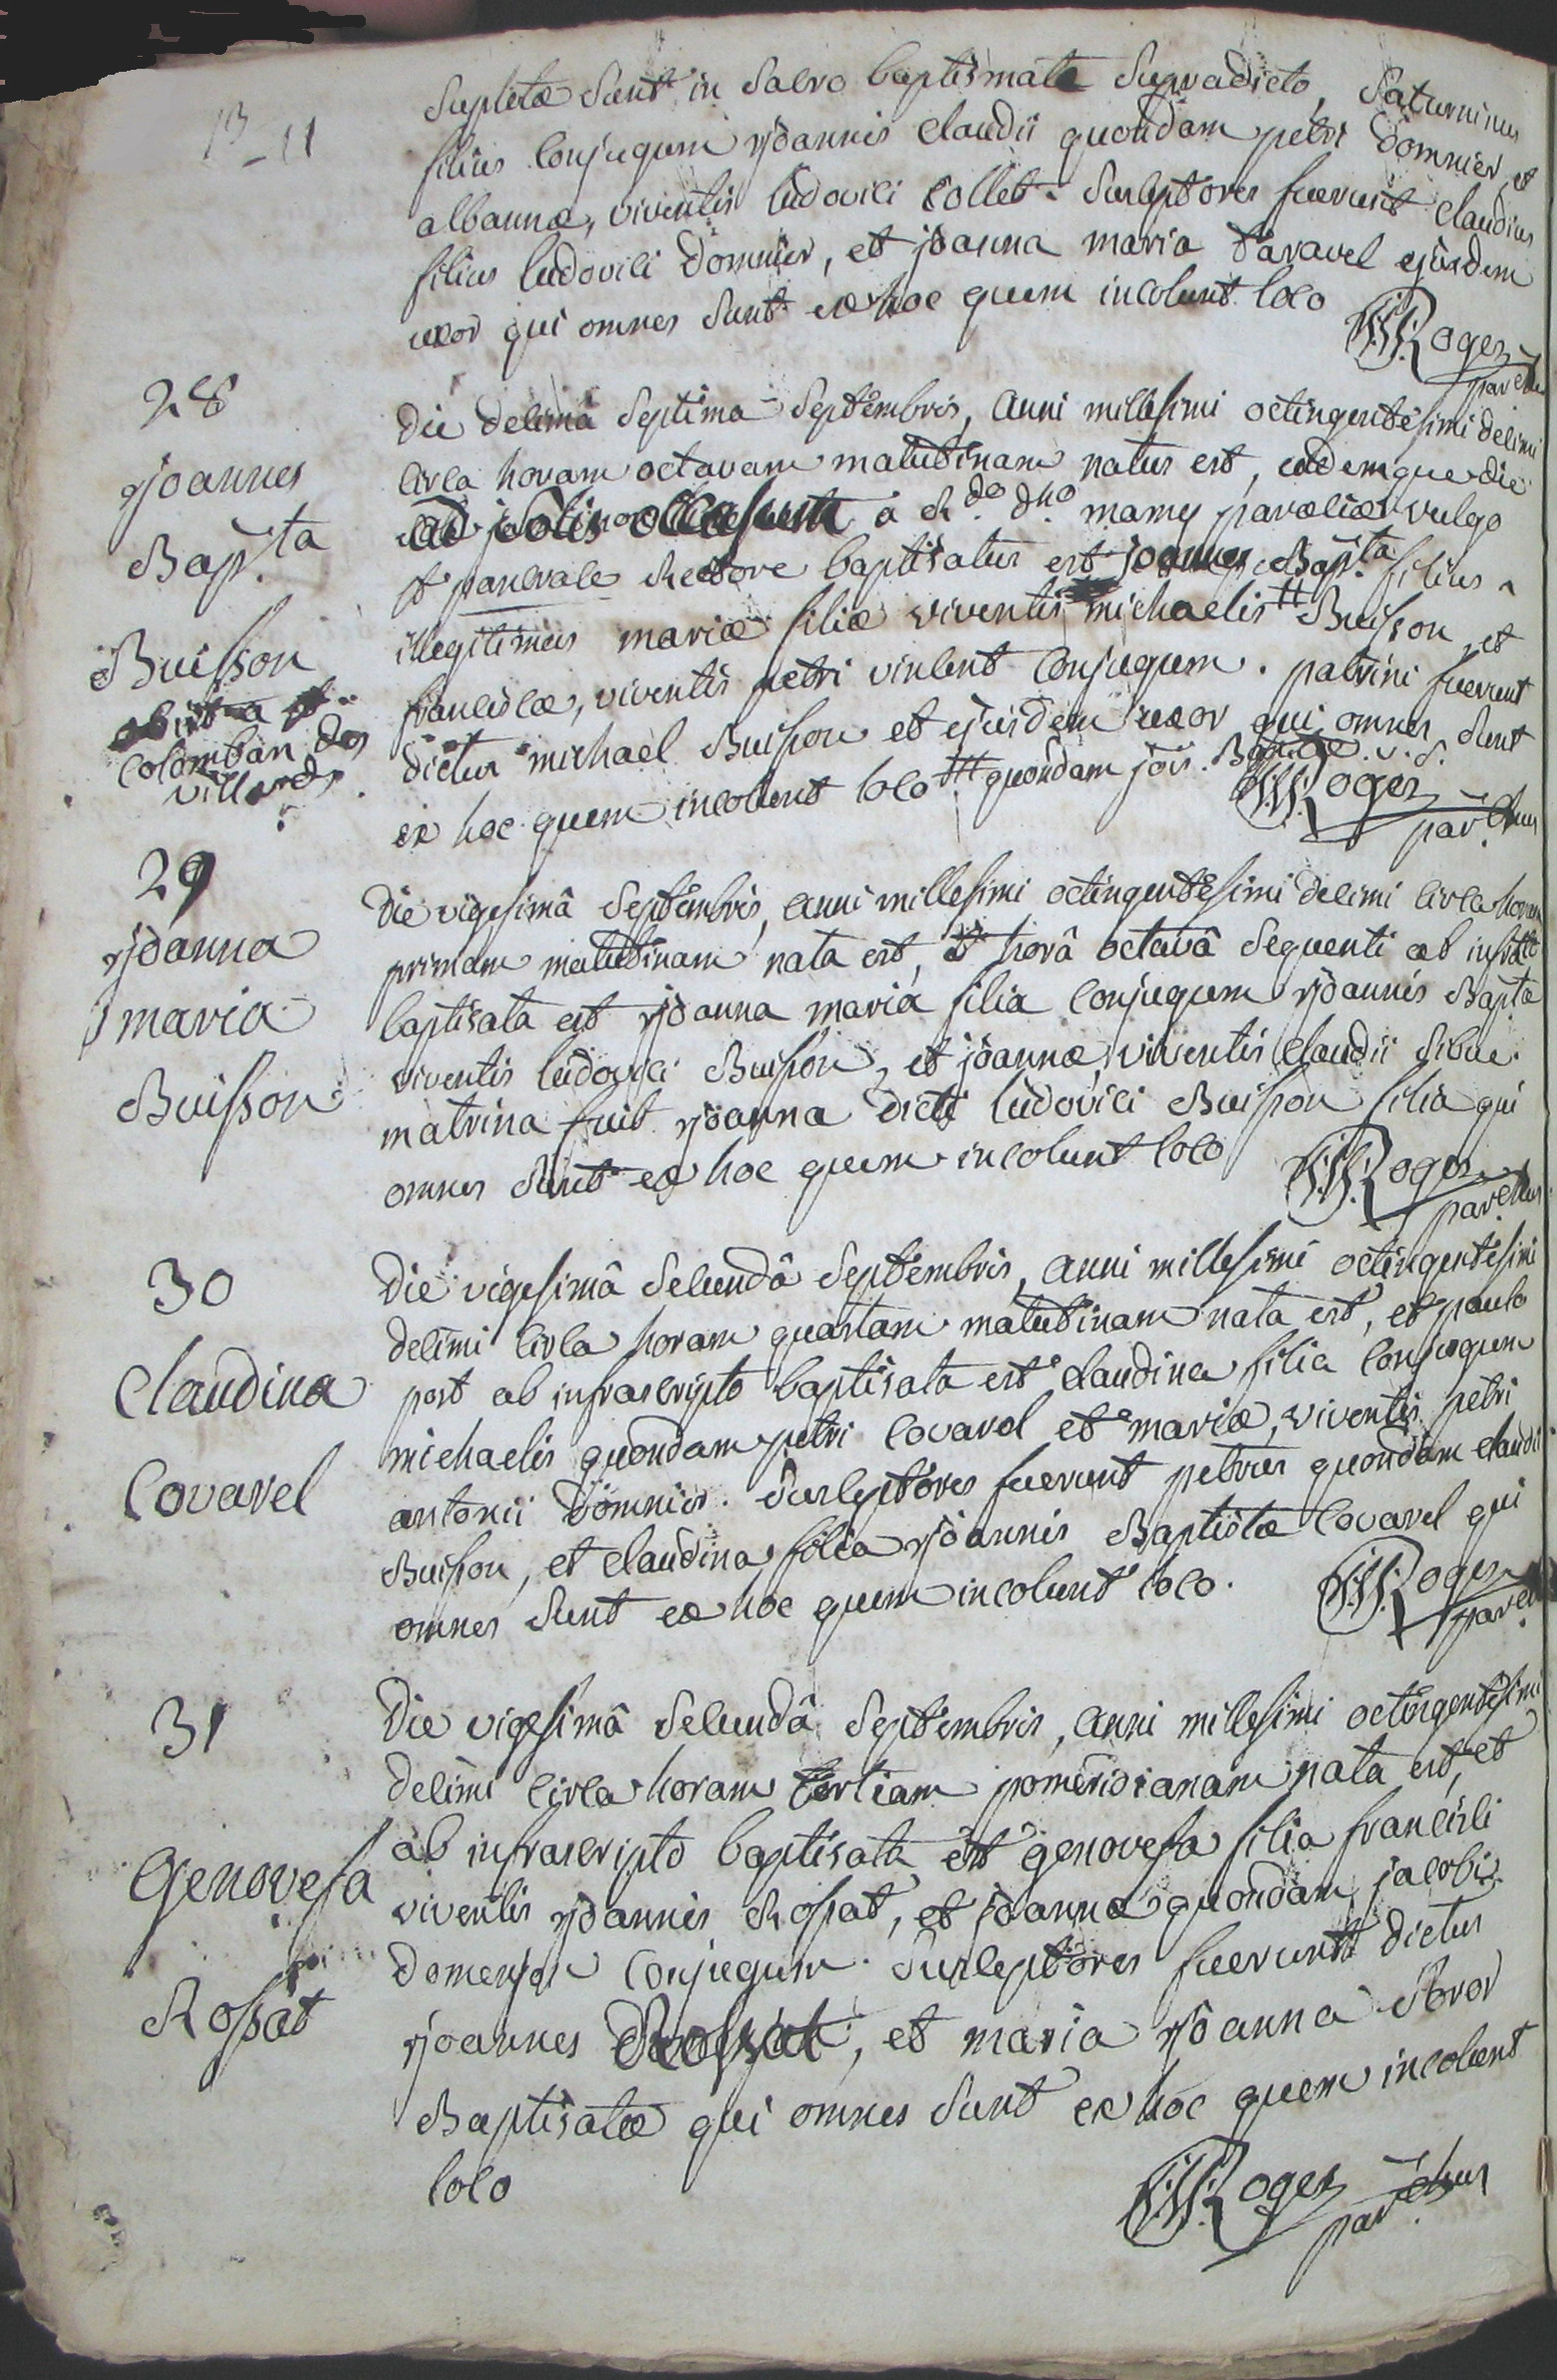 13-11
Supletæ sunt in sacro baptismate supradicto, Saturninus
filius conjugum joannis claudii quondam petri Domnier, et
albannæ, viventis ludovici Collet. Susceptores fuerunt claudius
filius ludovici Domnier, et joanna maria Favavel ejusdem
uxor qui omnes sunt ex hoc quem incolunt loco
Roger
par.chus
28
joannes
Bap.ta
Buisson
obiit a st
Colomban des
villards
Die decimâ septima septembris, anni millesimi octingentesimi decimi
circa horam octavam matutinam natus est, eademque die
ad solis occasum a R.do d.no mamy parœciæ vulgo
st pancrace Rectore baptisatus est joannes Bap.ta filius
illegitimus mariæ filiæ viventis michaelis tt Buisson, et
franciscæ, viventis petri vincent conjugum. patrini fuerunt
dictus michael Buisson et ejusdem uxor qui omnes sunt
ex hoc quem incolunt loco tt quondam jois. Baptæ v. s.
Roger
par.chus
29
joanna
maria
Buisson
Die vigesimâ septembris, anni millesimi octingentesimi decimi circa horam
primam matutinam nata est, et horâ octavâ sequenti ab infrâtto
baptisata est joanna maria filia conjugum joannis Bapta
viventis ludovici Buisson, et joannæ, viventis claudii sibue.
matrina fuit joanna dicti ludovici Buisson filia qui
omnes sunt ex hoc quem incolunt loco
Roger
par.chus
30
Claudina
Covarel
Die vigesimâ secundâ septembris, anni millesimi octingentesimi
decimi circa horam quartam matutinam nata est, et paulo
post ab infrascripto baptisata est claudina filia conjugum
michaelis quondam petri covarel et mariæ, viventis petri
antonii Domnier. Susceptores fuerunt petrus quondam claudii
Buisson, et claudina filia joannis Baptistæ covarel qui
omnes sunt ex hoc quem incolunt loco.
Roger
par.chus
31
Genovefa
Rossat
Die vigesimâ secundâ septembris, anni millesimi octingentesimi
decimi circa horam tertiam pomeridianam nata est, et
ab infrascripto baptisata est genovefa filia francisci
viventis joannis Rossat, et joannæ quondam jacobi
domenjon conjugum. Susceptores fuerunt dictus
joannes Rossat, et maria joanna soror
Baptisatæ qui omnes sunt ex hoc quem incolunt
loco
Roger
par.chus